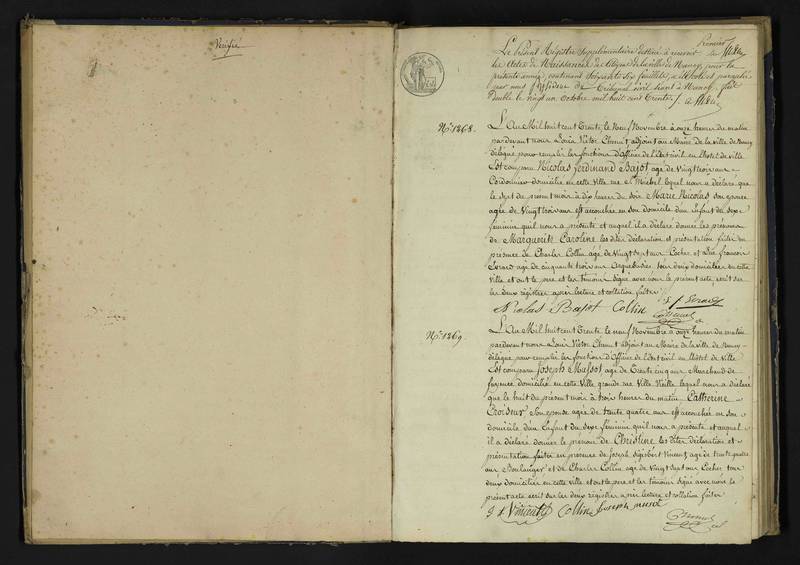 Vérifié
Le Présent Régistre supplémentaire destiné à recevoir
les Actes de Naissances des Citoyens de la ville de Nancy, pour la
présente année, contenant soixante six feuillets, a été coté et paraphé
par nous Président du Tribunal civil séant à Nancy, fait
double le vingt un octobre mil huit cent trente
Premier
N.° 1268.
L'An Mil huit cent Trente, le Neuf Novembre à onze heures du matin
pardevant nous Louis Victor adjoint au Maire de la ville de Nancy
délégué pour remplir les fonctions d'officier de l'Etat civil en l'hôtel de ville
Est comparu Nicolas Ferdinand Bajot agé de Vingt trois ans
Cordonnier domicilié en cette Ville rue St Michel lequel nous a déclaré que
le sept du présent mois à dix heures du soir Marie Nicolas son épouse
agée de Vingt trois ans est accouchée en son domicile d'un Enfant du sexe
féminin qu'il nous a présenté et auquel il a déclaré donner les prénoms
de Marguerite Caroline les dites déclaration et présentation faites en
présence de Charles Collin agé de Vingt sept ans Cocher et François
Evrard agé de cinquante trois ans Arquebusier tous deux domiciliés en cette
ville et ont le pere et les témoins signé avec nous le présent acte écrit sur
les deux registres après lecture et collation faites
Nicolas Bajot Collin f Evrard
N.° 1269
L'An Mil huit cent Trente, le neuf Novembre à onze heures du matin
pardevant nous Louis Victor adjoint au Maire de la ville de Nancy
délégué pour remplir les fonctions d'officier de l'Etat civil en l'hôtel de Ville
Est comparu Joseph Mussot agé de Trente cinq ans Marchand de
fayence domicilié en cette Ville grande rue Ville Vieille lequel nous a déclaré
que le huit du présent mois à trois heures du matin Catherine
Croiseur son épouse agée de trente quatre ans est accouchée en son
domicile d'un Enfant du sexe féminin qu'il nous a présenté et auquel
il a déclaré donner le prénom de Christine les dites déclaration et
présentation faites en présence de Joseph Vincent agé de trente quatre
ans Boulanger et de Charles Collin agé de vingt sept ans Cocher tous
deux domiciliés en cette ville et ont le pere et les témoins signé avec nous le
présent acte écrit sur les deux registres après lecture et collation faites
Vincent Collin Joseph